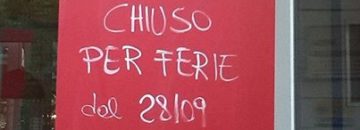 CHIUSO
PER FERIE
dal 28/09